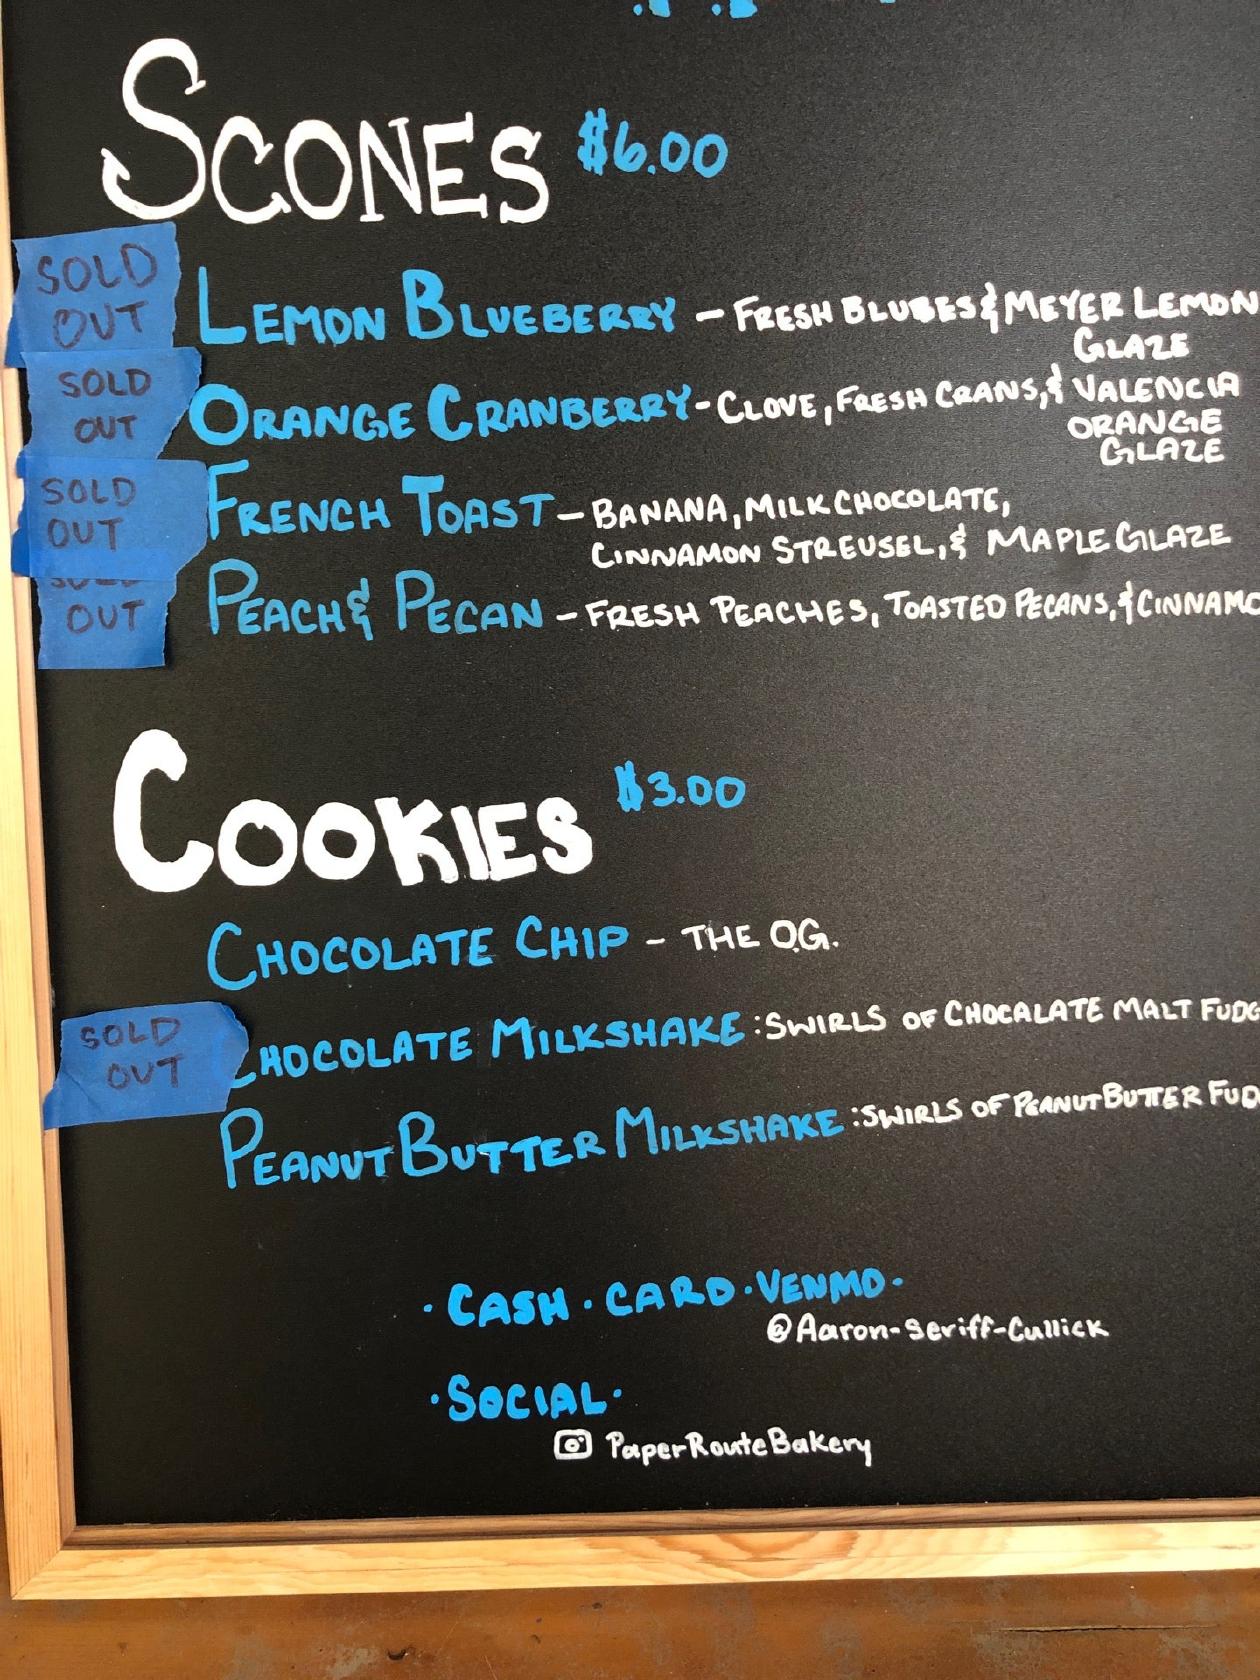 SCONES $6.00
SOLD
OUT
LEMON BLUEBERRY - FRESH BLUBES & MEYER LEMON
GLAZE
SOLD
OUT
ORANGE CRANBERRY - CLOVE, FRESH CRANS, & VALENCIA
ORANGE
GLAZE
SOLD
OUT
FRENCH TOAST - BANANA, MILK CHOCOLATE,
CINNAMON STREUSEL, & MAPLE GLAZE
SOLD
OUT
PEACH & PECAN - FRESH PEACHES, TOASTED PECANS, & CINNAMO
COOKIES $3.00
CHOCOLATE CHIP - THE O.G.
SOLD
OUT
CHOCOLATE MILKSHAKE : SWIRLS OF CHOCALATE MALT FUDG
PEANUT BUTTER MILKSHAKE : SWIRLS OF PEANUT BUTTER FUD
· CASH · CARD · VENMO ·
@Aaron-Seriff-Cullick
· SOCIAL ·
PaperRouteBakery